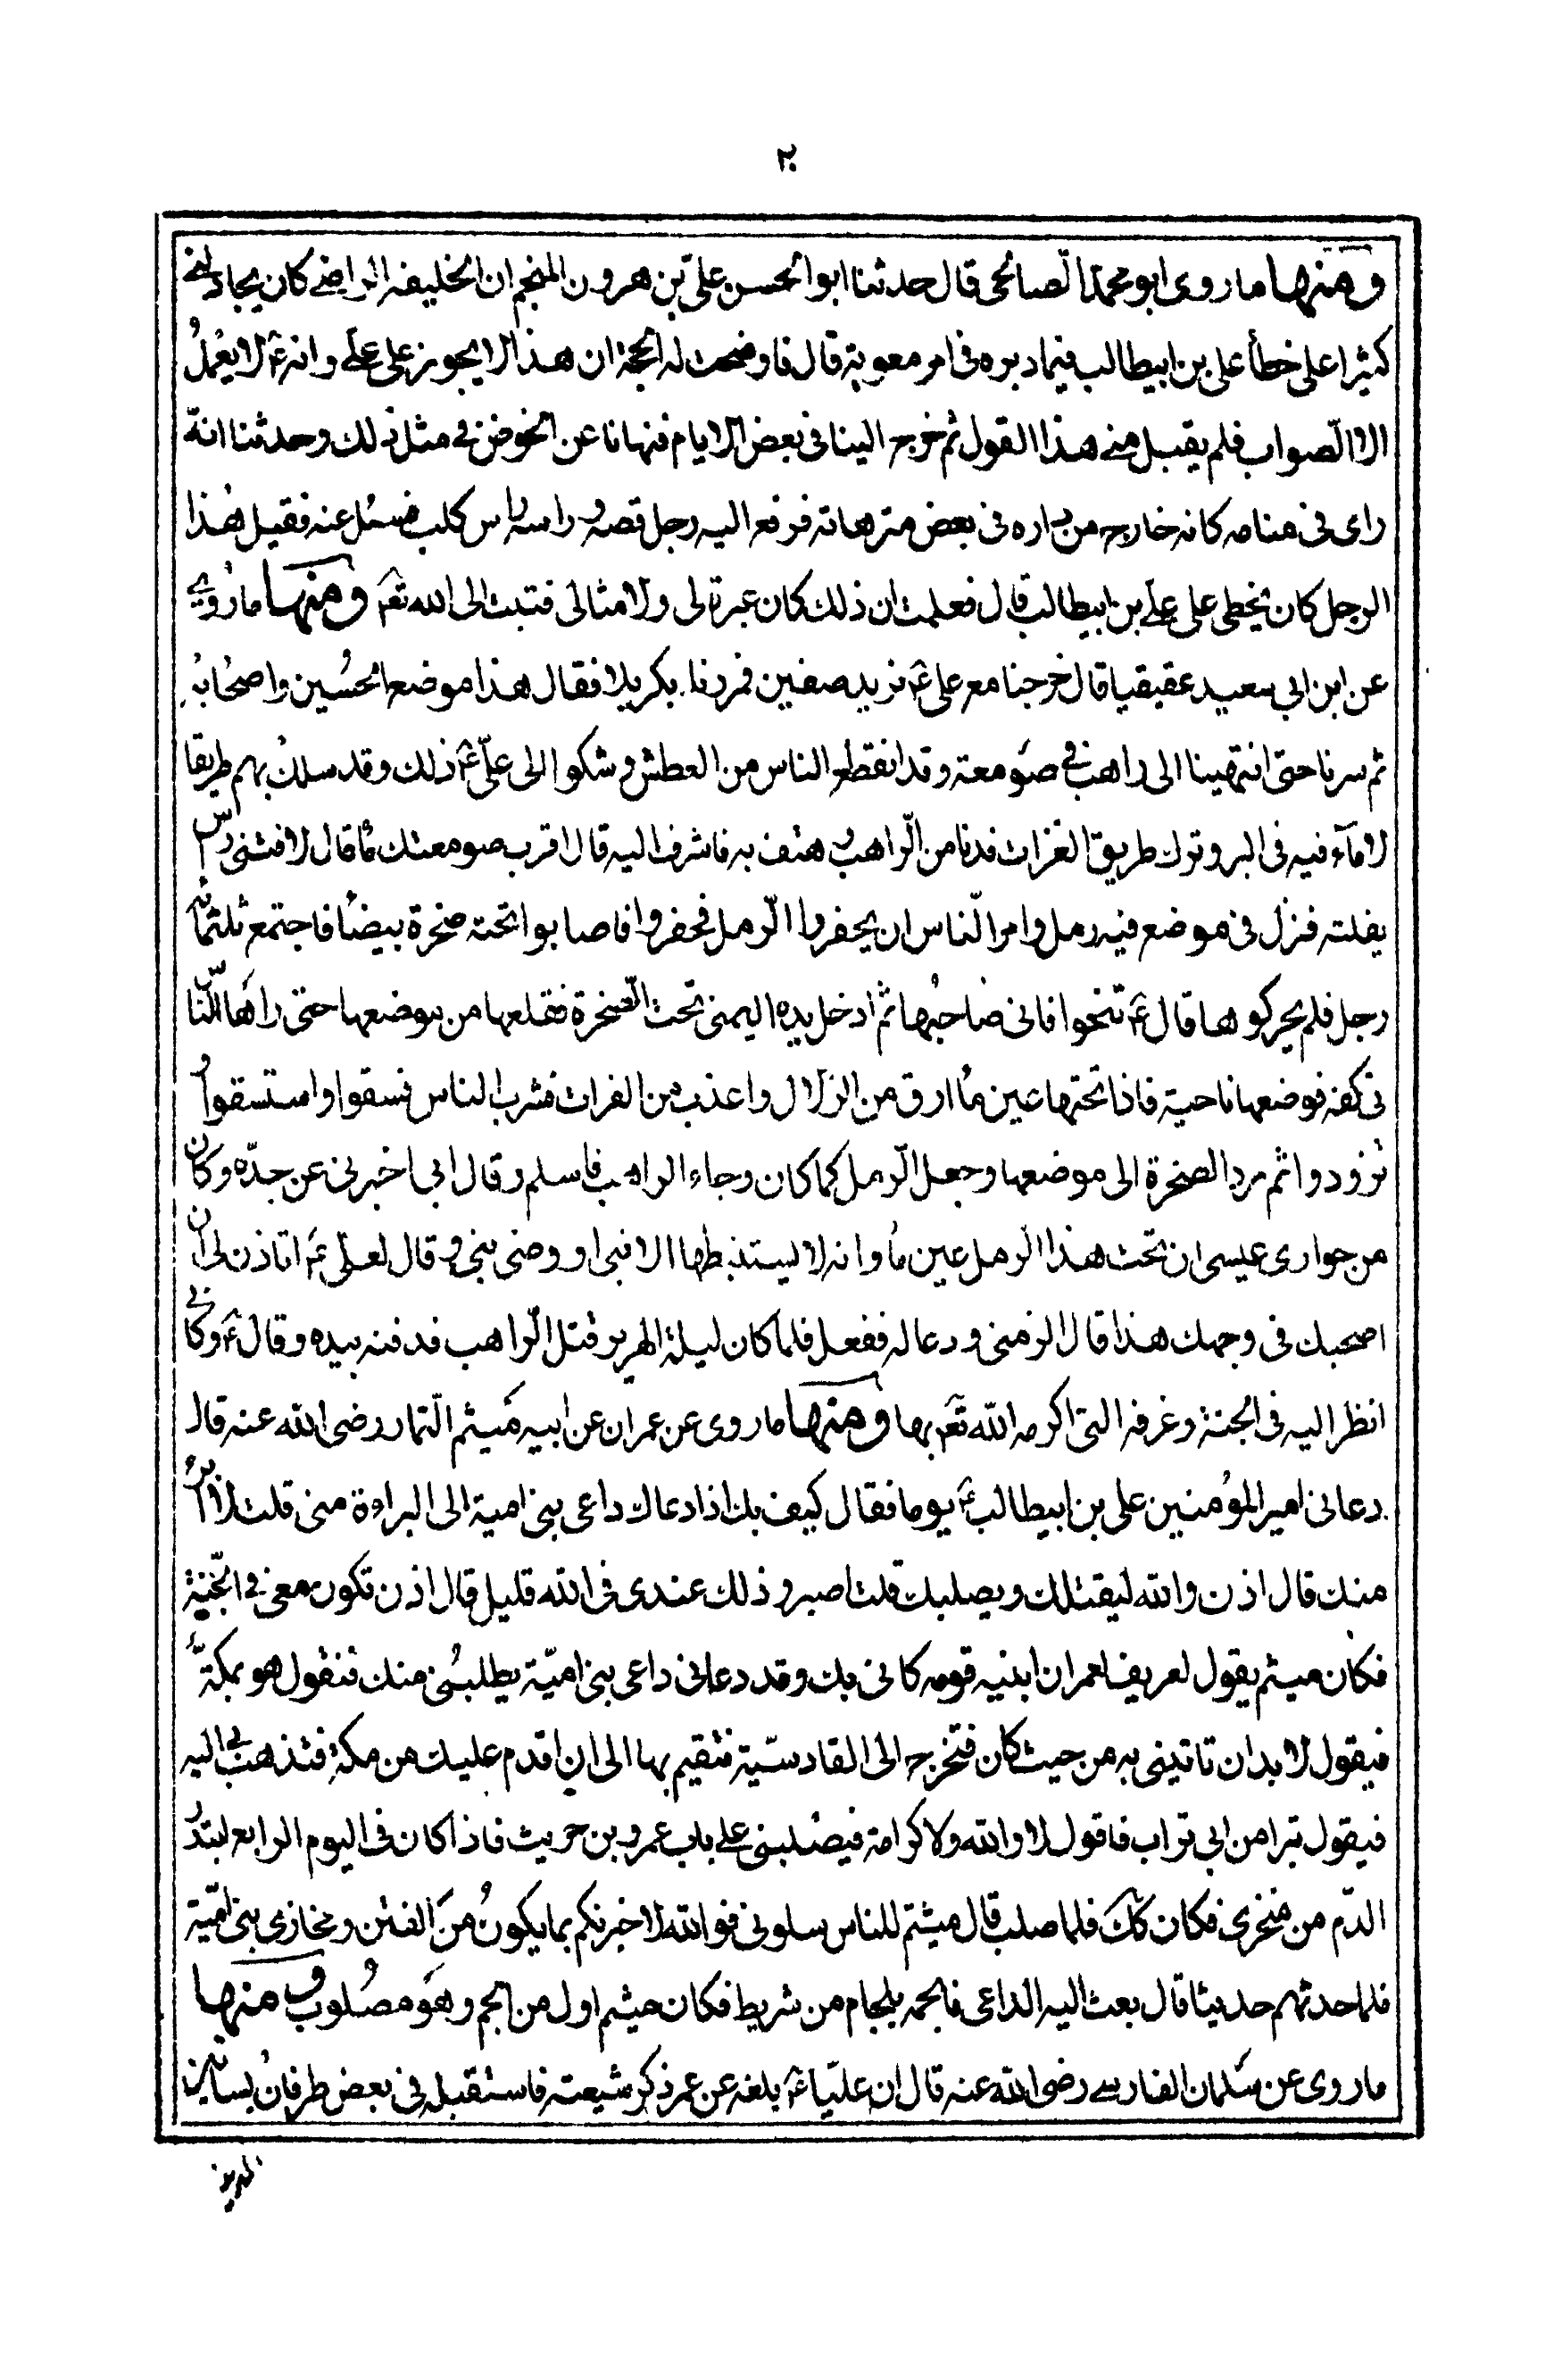 ٢٠
ومنها ما روى ابو محمد الصالحى قال حدثنا ابوالحسن على بن هرون المنجم ان الخليفه الراضے كان يجادلنے
كثيرا على خطأ على بن ابيطالب فيما دبره فى امر معوية قال فاوضحت له الحجة ان هذا لا يجوز على علے وانه ع لا يعمل
الا الصواب فلم يقبل منے هذا القول ثم خرج الينا فى بعض الايام فنهانا عن الخوض فے مثل ذلك وحدثنا انه
راى فى منامه كانه خارج من داره فى بعض متنزهاته فرفع اليه رجل قصه وراسه راس كلب فسئل عنه فقيل هذا
الرجل كان يخطى على علے بن ابيطالب قال فعلمت ان ذلك كان عبرة لى ولامثالى فتبت الى الله تعم ومنها ما روے
عن ابن ابى سعيد عقيقيا قال خرجنا مع على ع نريد صفين فمررنا بكربلا فقال هذا موضع الحسين واصحابه
ثم سرنا حتى انتهينا الى راهب فے صومعة وقد انقطع الناس من العطش وشكوا الى علىّ ع ذلك وقد سلك بهم طريقا
لا ماء فيه فى البر وترك طريق الفرات فدنا من الراهب وهتف به فاشرف اليه قال اقرب صومعتك ماء قال لا فثنى راس
بغلته فنزل فى موضع فيه رمل وامر الناس ان يحفروا الرمل فحفروا فاصابوا تحته صخرة بيضا فاجتمع ثلثمائة
رجل فلم يحركوها قال ع تنحوا فانى صاحبها ثم ادخل يده اليمنى تحت الصخرة فقلعها من موضعها حتى راها الناس
فى كفه فوضعها ناحية فاذا تحتها عين ماء ارق من الزلال واعذب من الفرات فشرب الناس فسقوا واستسقوا و
تزودوا ثم رد الصخرة الى موضعها وجعل الرمل كما كان وجاء الراهب فاسلم وقال ابى اخبرنى عن جده وكان
من حوارى عيسى ان تحت هذا الرمل عين ماء وانه لا يستنبطها الا نبى او وصى نبى و قال لعلى ع اتاذن لى ان
اصحبك فى وجهك هذا قال الزمنى ودعا له ففعل فلما كان ليلة الهرير قتل الراهب فدفنه بيده وقال ع وكانى
انظر اليه فى الجنة وغرفه التى اكرمه الله تعم بها ومنها ما روى عن عمران عن ابيه ميثم التمار رضى الله عنه قال
دعانى امير المؤمنين على بن ابيطالب ع يوما فقال كيف بك اذا دعاك داعى بنى امية الى البراءة منى قلت لا ابرء
منك قال اذن والله ليقتلك ويصلبك قلت اصبر وذلك عندى فى الله قليل قال اذن تكون معى فے الجنة
فكان ميثم يقول لعريف لعمران ابنيه قومه كانى بك وقد دعانى داعى بنى امية يطلبنى منك فتقول هو بمكة
فيقول لا بد ان تاتينى به من حيث كان فتخرج الى القادسية فتقيم بها الى ان اقدم عليك من مكة فتذهب بى اليه
فيقول تبرا من ابى تراب فاقول لا والله ولا كرامة فيصلبنى علے باب عمرو بن حريث فاذا كان فى اليوم الرابع ابتدر
الدم من منخرى فكان كك فلما صلب قال ميثم للناس سلونى فوالله لاخبرنكم بما يكون من الفتن ومخازى بنى امية
فلما حدثهم حديثا قال بعث اليه الداعى فالجمه بلجام من شريط فكان ميثم اول من الجم وهو مصلوب ومنها
ما روى عن سلمان الفارسے رضى الله عنه قال ان عليا ع بلغه عن عمر ذكر شيعته فاستقبله فى بعض طرقات بساتين
المدينة